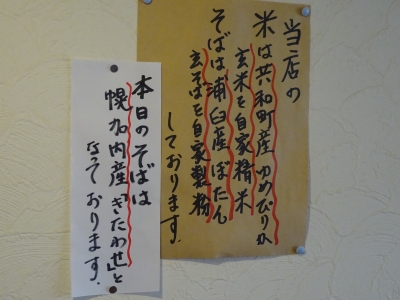 当店の
米は共和町産ゆめぴりか
玄米を自家精米
そばは浦臼産ぼたん
玄そばを自家製粉
しております.
本日のそばは
幌加内産「きたわせ」と
なっております.